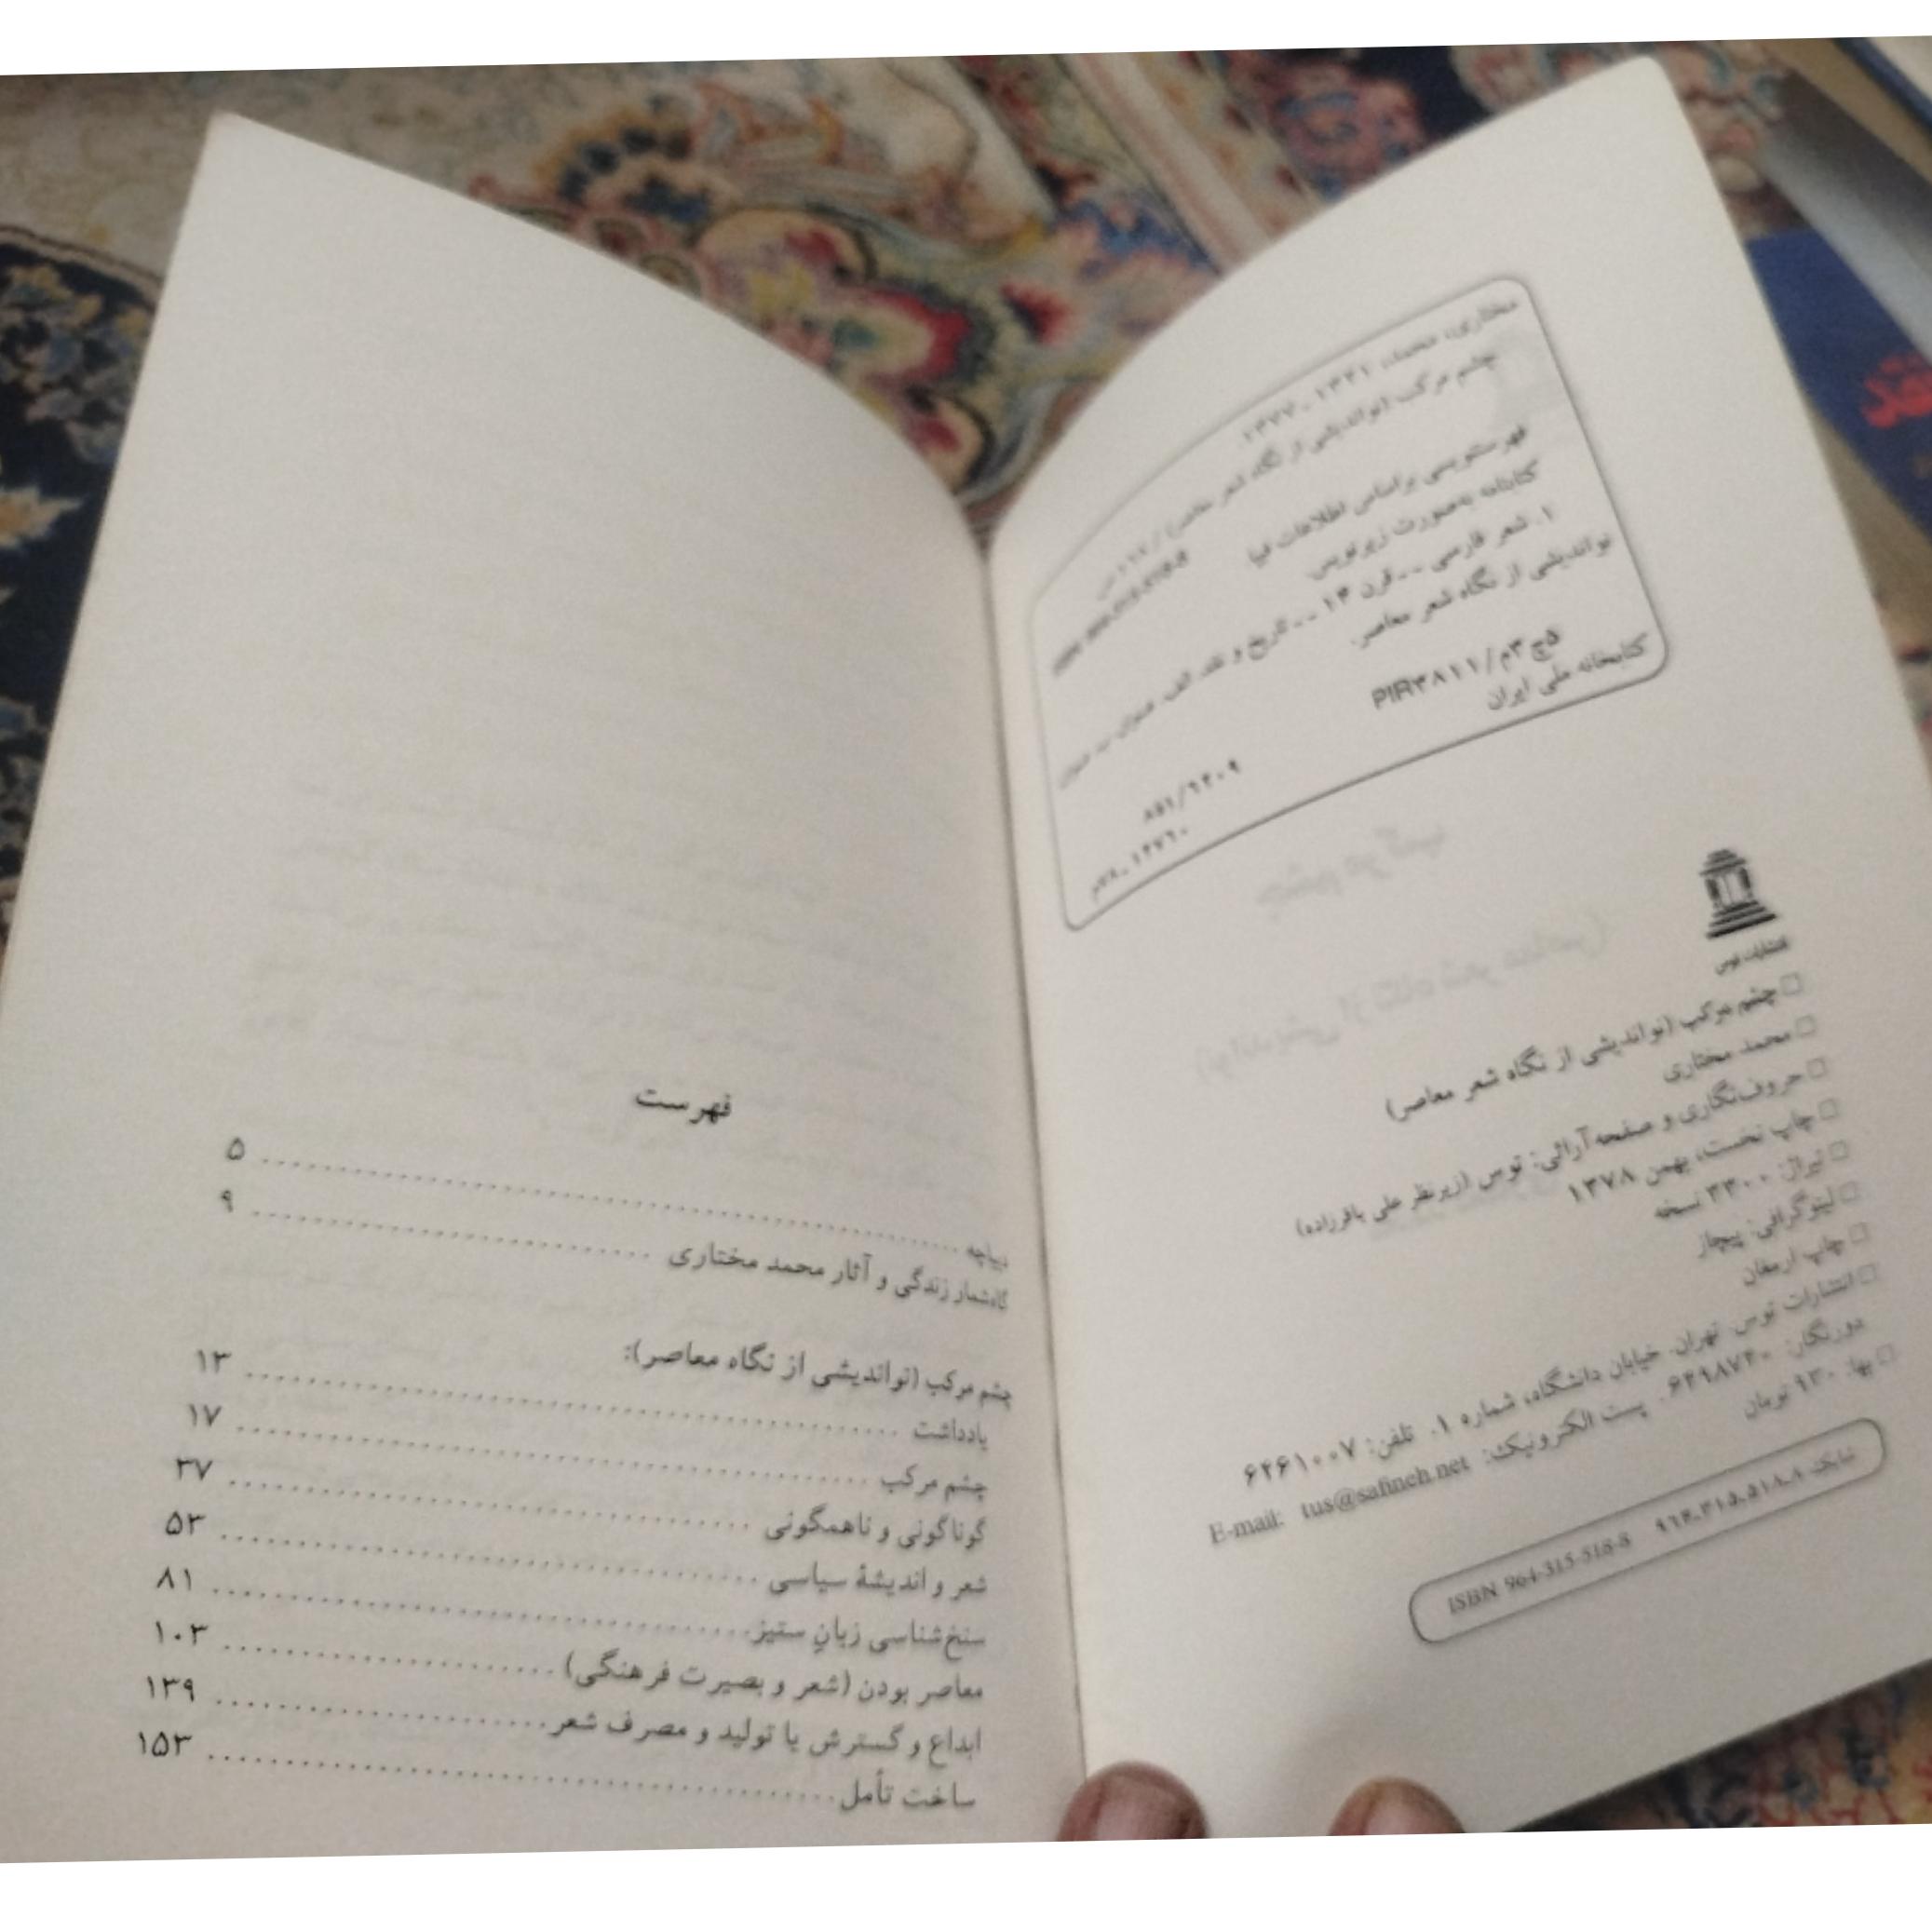 مختاری، محمد، ۱۳۲۱ ـ ۱۳۷۷.
چشم مرکب (نواندیشی از نگاه شعر معاصر) /
فهرستنویسی براساس اطلاعات فیپا
کتابنامه به‌صورت زیرنویس.
۱. شعر فارسی -- قرن ۱۴ -- تاریخ و نقد. الف. عنوان. ب. عنوان:
نواندیشی از نگاه شعر معاصر.
PIR۳۸۱۱/م۳چ۵
۸۵۱/۶۲۰۹
کتابخانه ملی ایران
انتشارات توس
□ چشم مرکب (نواندیشی از نگاه شعر معاصر)
□ محمد مختاری
□ حروف‌نگاری و صفحه‌آرائی: توس (زیرنظر علی باقرزاده)
□ چاپ نخست، بهمن ۱۳۷۸
□ تیراژ: ۳۳۰۰ نسخه
□ لیتوگرافی: پیچاز
□ چاپ ارمغان
□ انتشارات توس. تهران. خیابان دانشگاه، شماره ۱. تلفن: ۶۴۶۱۰۰۷
دورنگار: ۶۴۹۸۷۴۰. پست الکترونیک: E-mail: tus@safineh.net
□ بها: ۹۳۰ تومان
شابک ۸ـ۵۱۸ـ۳۱۵ـ۹۶۴ ISBN 964-315-518-8
فهرست
دیباچه ۵
گاه‌شمار زندگی و آثار محمد مختاری ۹
چشم مرکب (نواندیشی از نگاه معاصر):
یادداشت ۱۳
چشم مرکب ۱۷
گوناگونی و ناهمگونی ۳۷
شعر و اندیشهٔ سیاسی ۵۳
سنخ‌شناسی زبانِ ستیز ۸۱
معاصر بودن (شعر و بصیرت فرهنگی) ۱۰۳
ابداع و گسترش یا تولید و مصرف شعر ۱۳۹
ساخت تأمل ۱۵۳